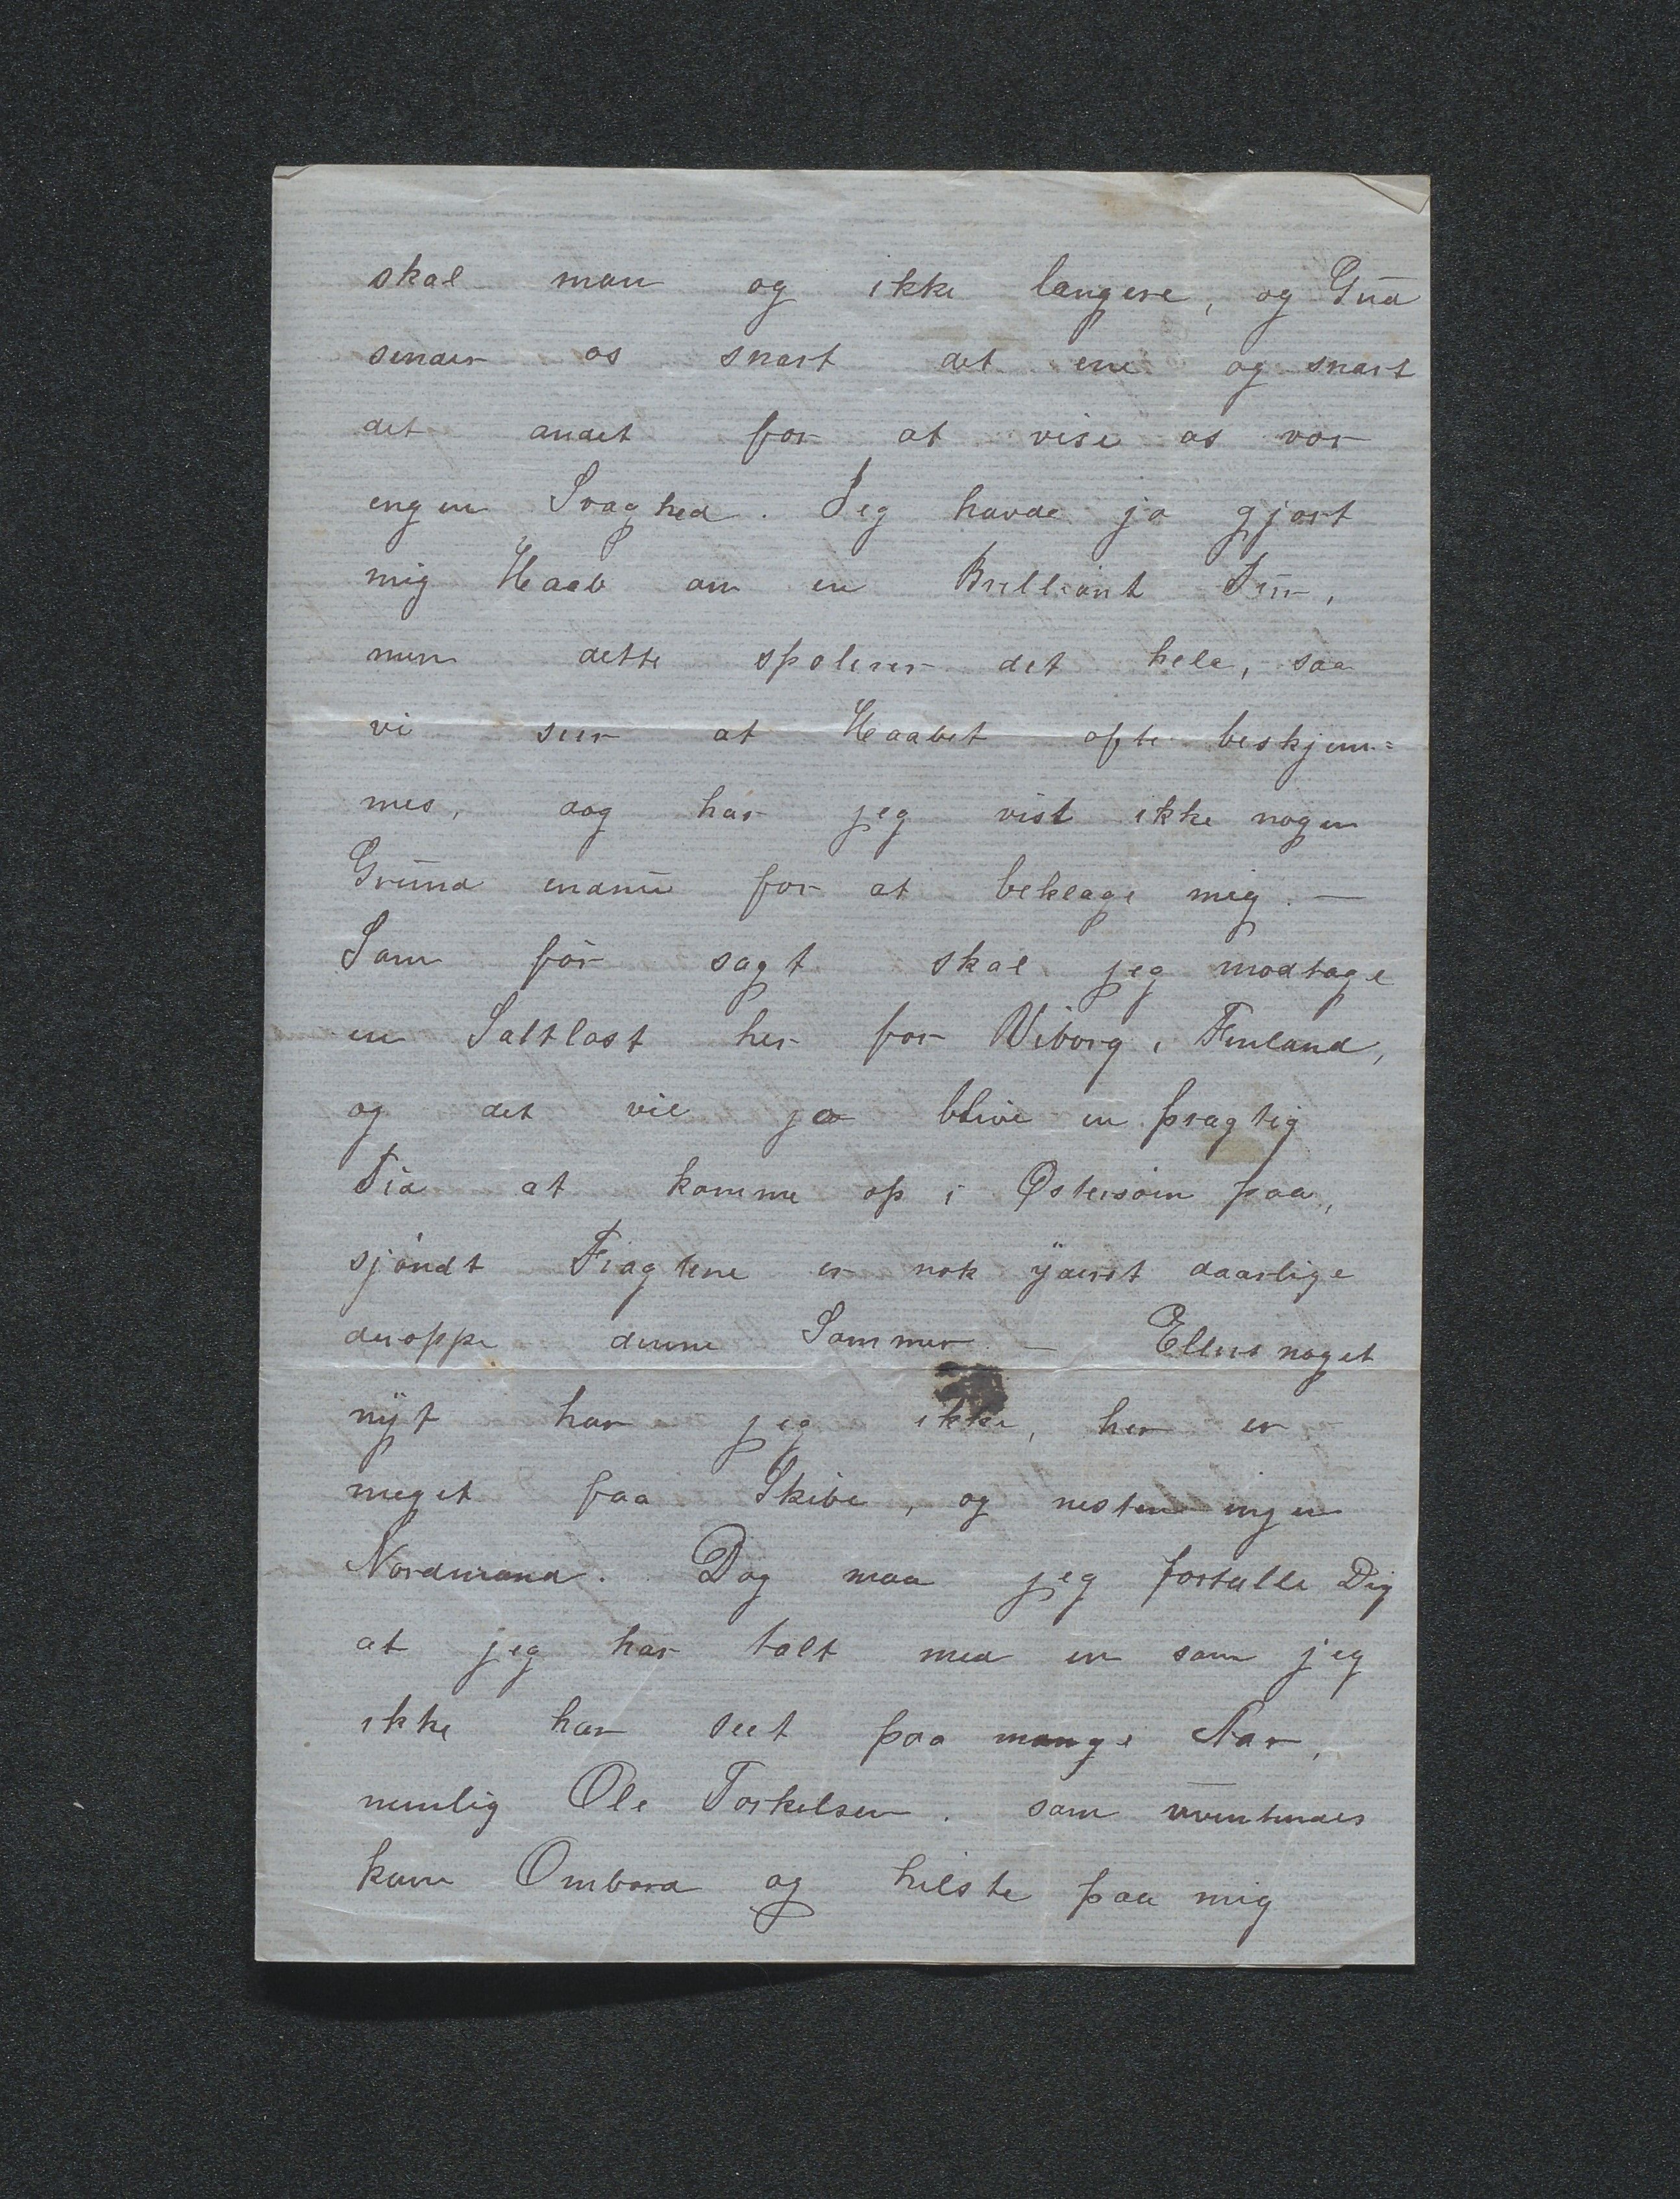 skal man og ikke længere, og Gud
sender os snart det ene og snart
det andet for at vise os vor
engen Svaghed. Jeg havde ja gjort
mig Haab om en Brilliant Tur,
men dette spolerer det hele, saa
vi seer at Haabet ofte beskjem=
mes, dog har jeg vist ikke nogen
Grund endnu for at beklage mig. —
Som før sagt skal jeg modtage
en Saltlast her for Viborg i Finland,
og det vil ja blive en pragtig
Tid at komme op i Østersøin paa,
sjøndt Fragtene er nok yderst daarlige
deroppe denne Sommer. — Ellers noget
nyt har jeg ikke, her er
meget faa Skibe, og nesten ingen
Nordmænd. Dog maa jeg fortælle Dig
at jeg har talt med en som jeg
ikke har seet paa mange Aar,
nemlig Ole Torkelsen. som uventendes
kom Ombord og hilste paa mig